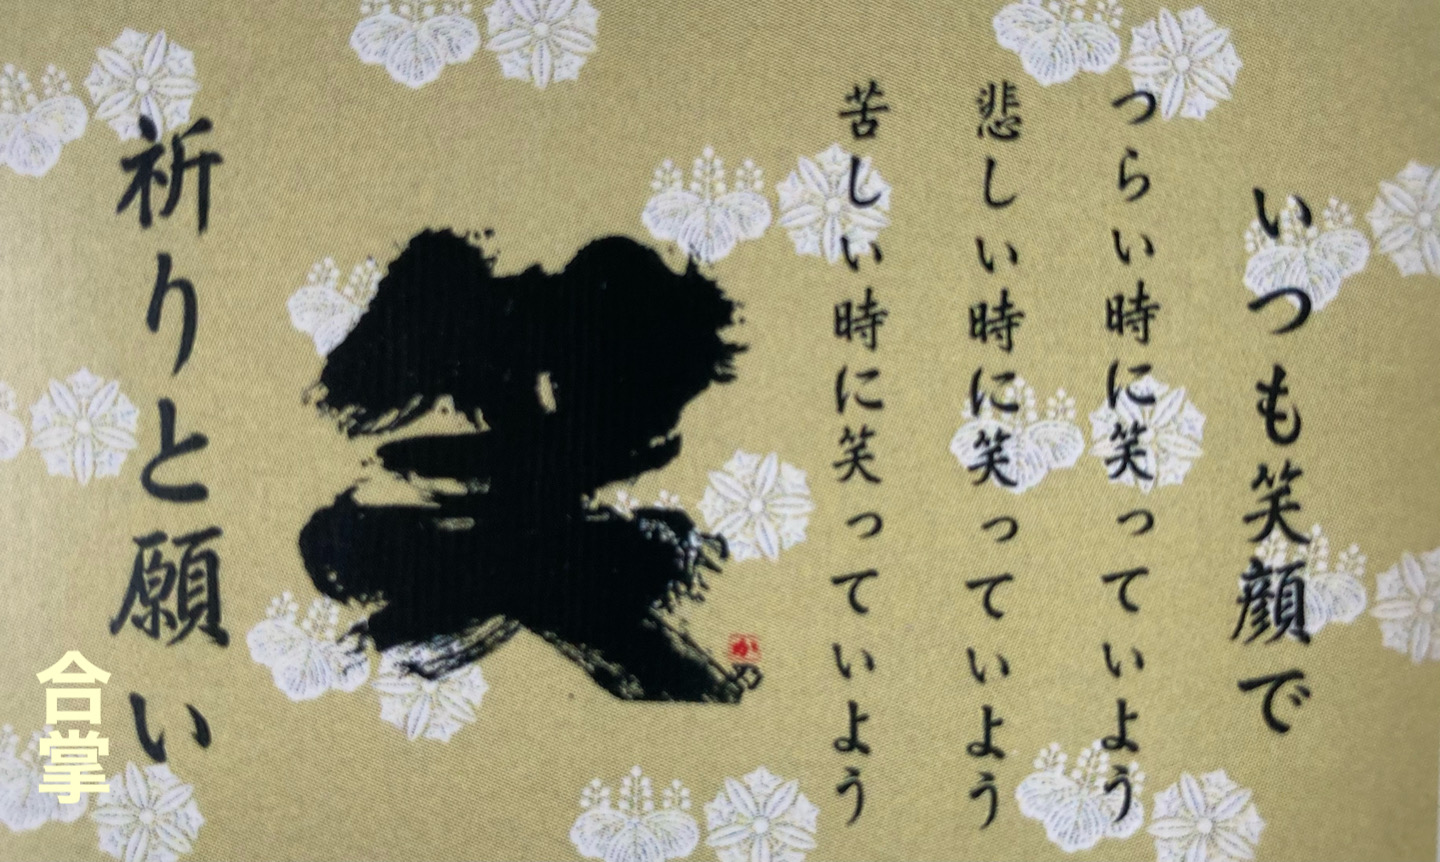 いつも笑顔で
つらい時に笑っていよう
悲しい時に笑っていよう
苦しい時に笑っていよう
笑
か
祈りと願い
合掌